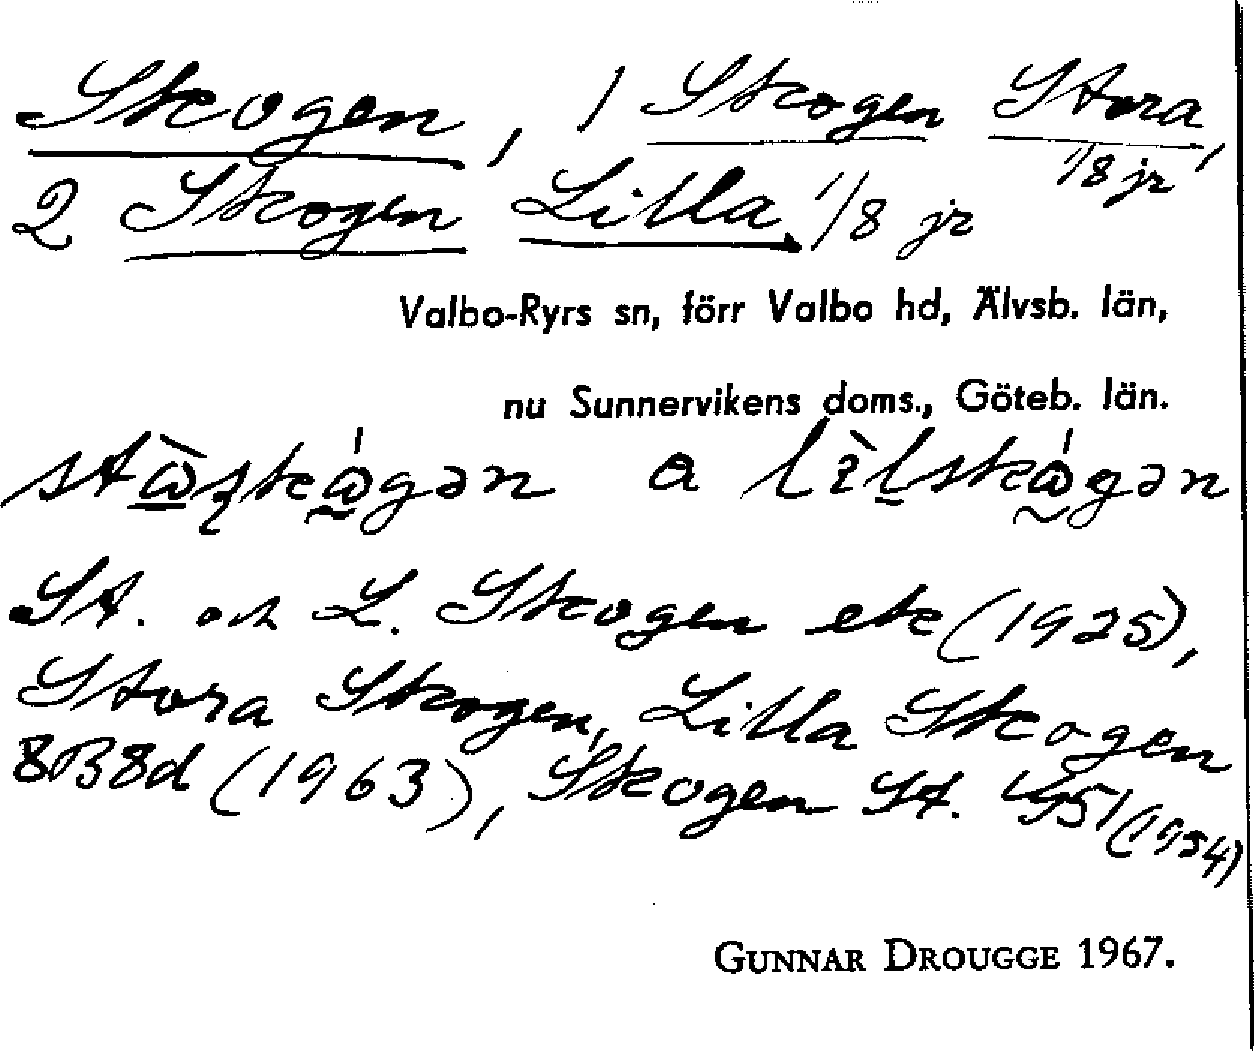 Skogen, 1 Skogen Stora, 1/8 jr
2 Skogen Lilla 1/8 jr
Valbo-Ryrs sn, förr Valbo hd, Älvsb. län,
nu Sunnervikens doms., Göteb. län.
a
St. och L. Skogen ek (1925),
Stora Skogen, Lilla Skogen
8B8d (1963), Skogen St. (1954)
GUNNAR DROUGGE 1967.